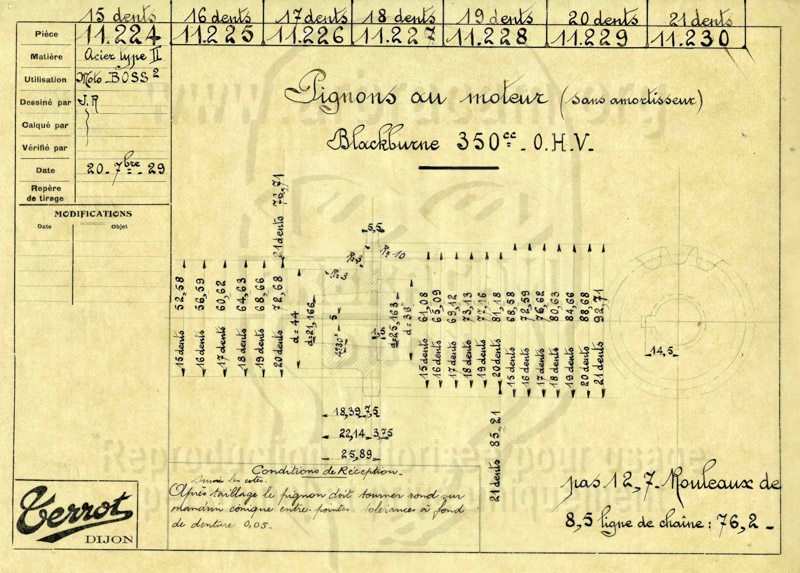 15 dents 16 dents 17 dents 18 dents 19 dents 20 dents 21 dents
Pièce 11.224 11.225 11.226 11.227 11.228 11.229 11.230
Matière Acier type II
Utilisation Moto BOSS²
Dessiné par J.R
Calqué par
Vérifié par
Date 20_7bre_29
Repère
de tirage
MODIFICATIONS
Date Objet
Pignons au moteur (sans amortisseur)
Blackburne 350cc_ O.H.V_
15 dents 52,58
16 dents 56,59
17 dents 60,62
18 dents 64,63
19 dents 68,66
20 dents 72,68
21 dents 76,71
d=44
d=21,166
5,5
R=3
R=10
R=3
5
1,5
d=25,163
d=38
15 dents 61,08
16 dents 65,09
17 dents 69,12
18 dents 73,13
19 dents 77,16
20 dents 81,18
21 dents 85,21
15 dents 68,58
16 dents 72,59
17 dents 76,62
18 dents 80,63
19 dents 84,66
20 dents 88,68
21 dents 92,71
14,5
18,39 7,5
22,14 3,75
25,89
Conditions de Réception_
Suivre les cotes.
Après taillage le pignon doit tourner rond sur
mandrin conique entre-pointes, tolérances à fond
de denture 0,05_
pas 12,7_ Rouleaux de
8,5 ligne de chaîne: 76,2_
Terrot
DIJON